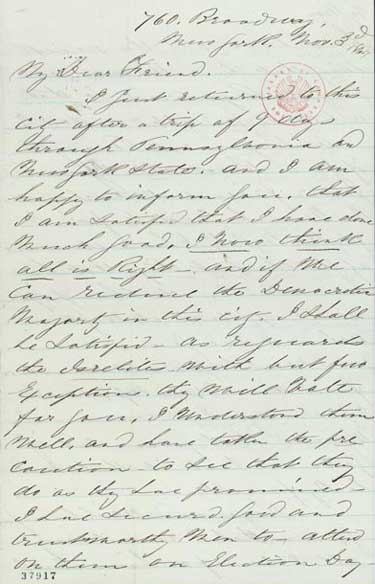 760. Broadway,
New York. Nov. 3d
My Dear Friend.
I just returned to this
city after a trip of 9 days
through Pennsylvania and
New York State. and I am
happy to inform you, that
I am satisfied that I have done
much good, I now think
all is Right and if we
Can reduce the Democratic
Majority in this city, I shall
be satisfied - as regards
the Israelites with but few
Exception. they will Vote
for you, I understand them
well, and have taken the pre
caution to see that they
do as they have promised -
I have secured good and
trustworthy men to attend
on them on Election Day -
37917